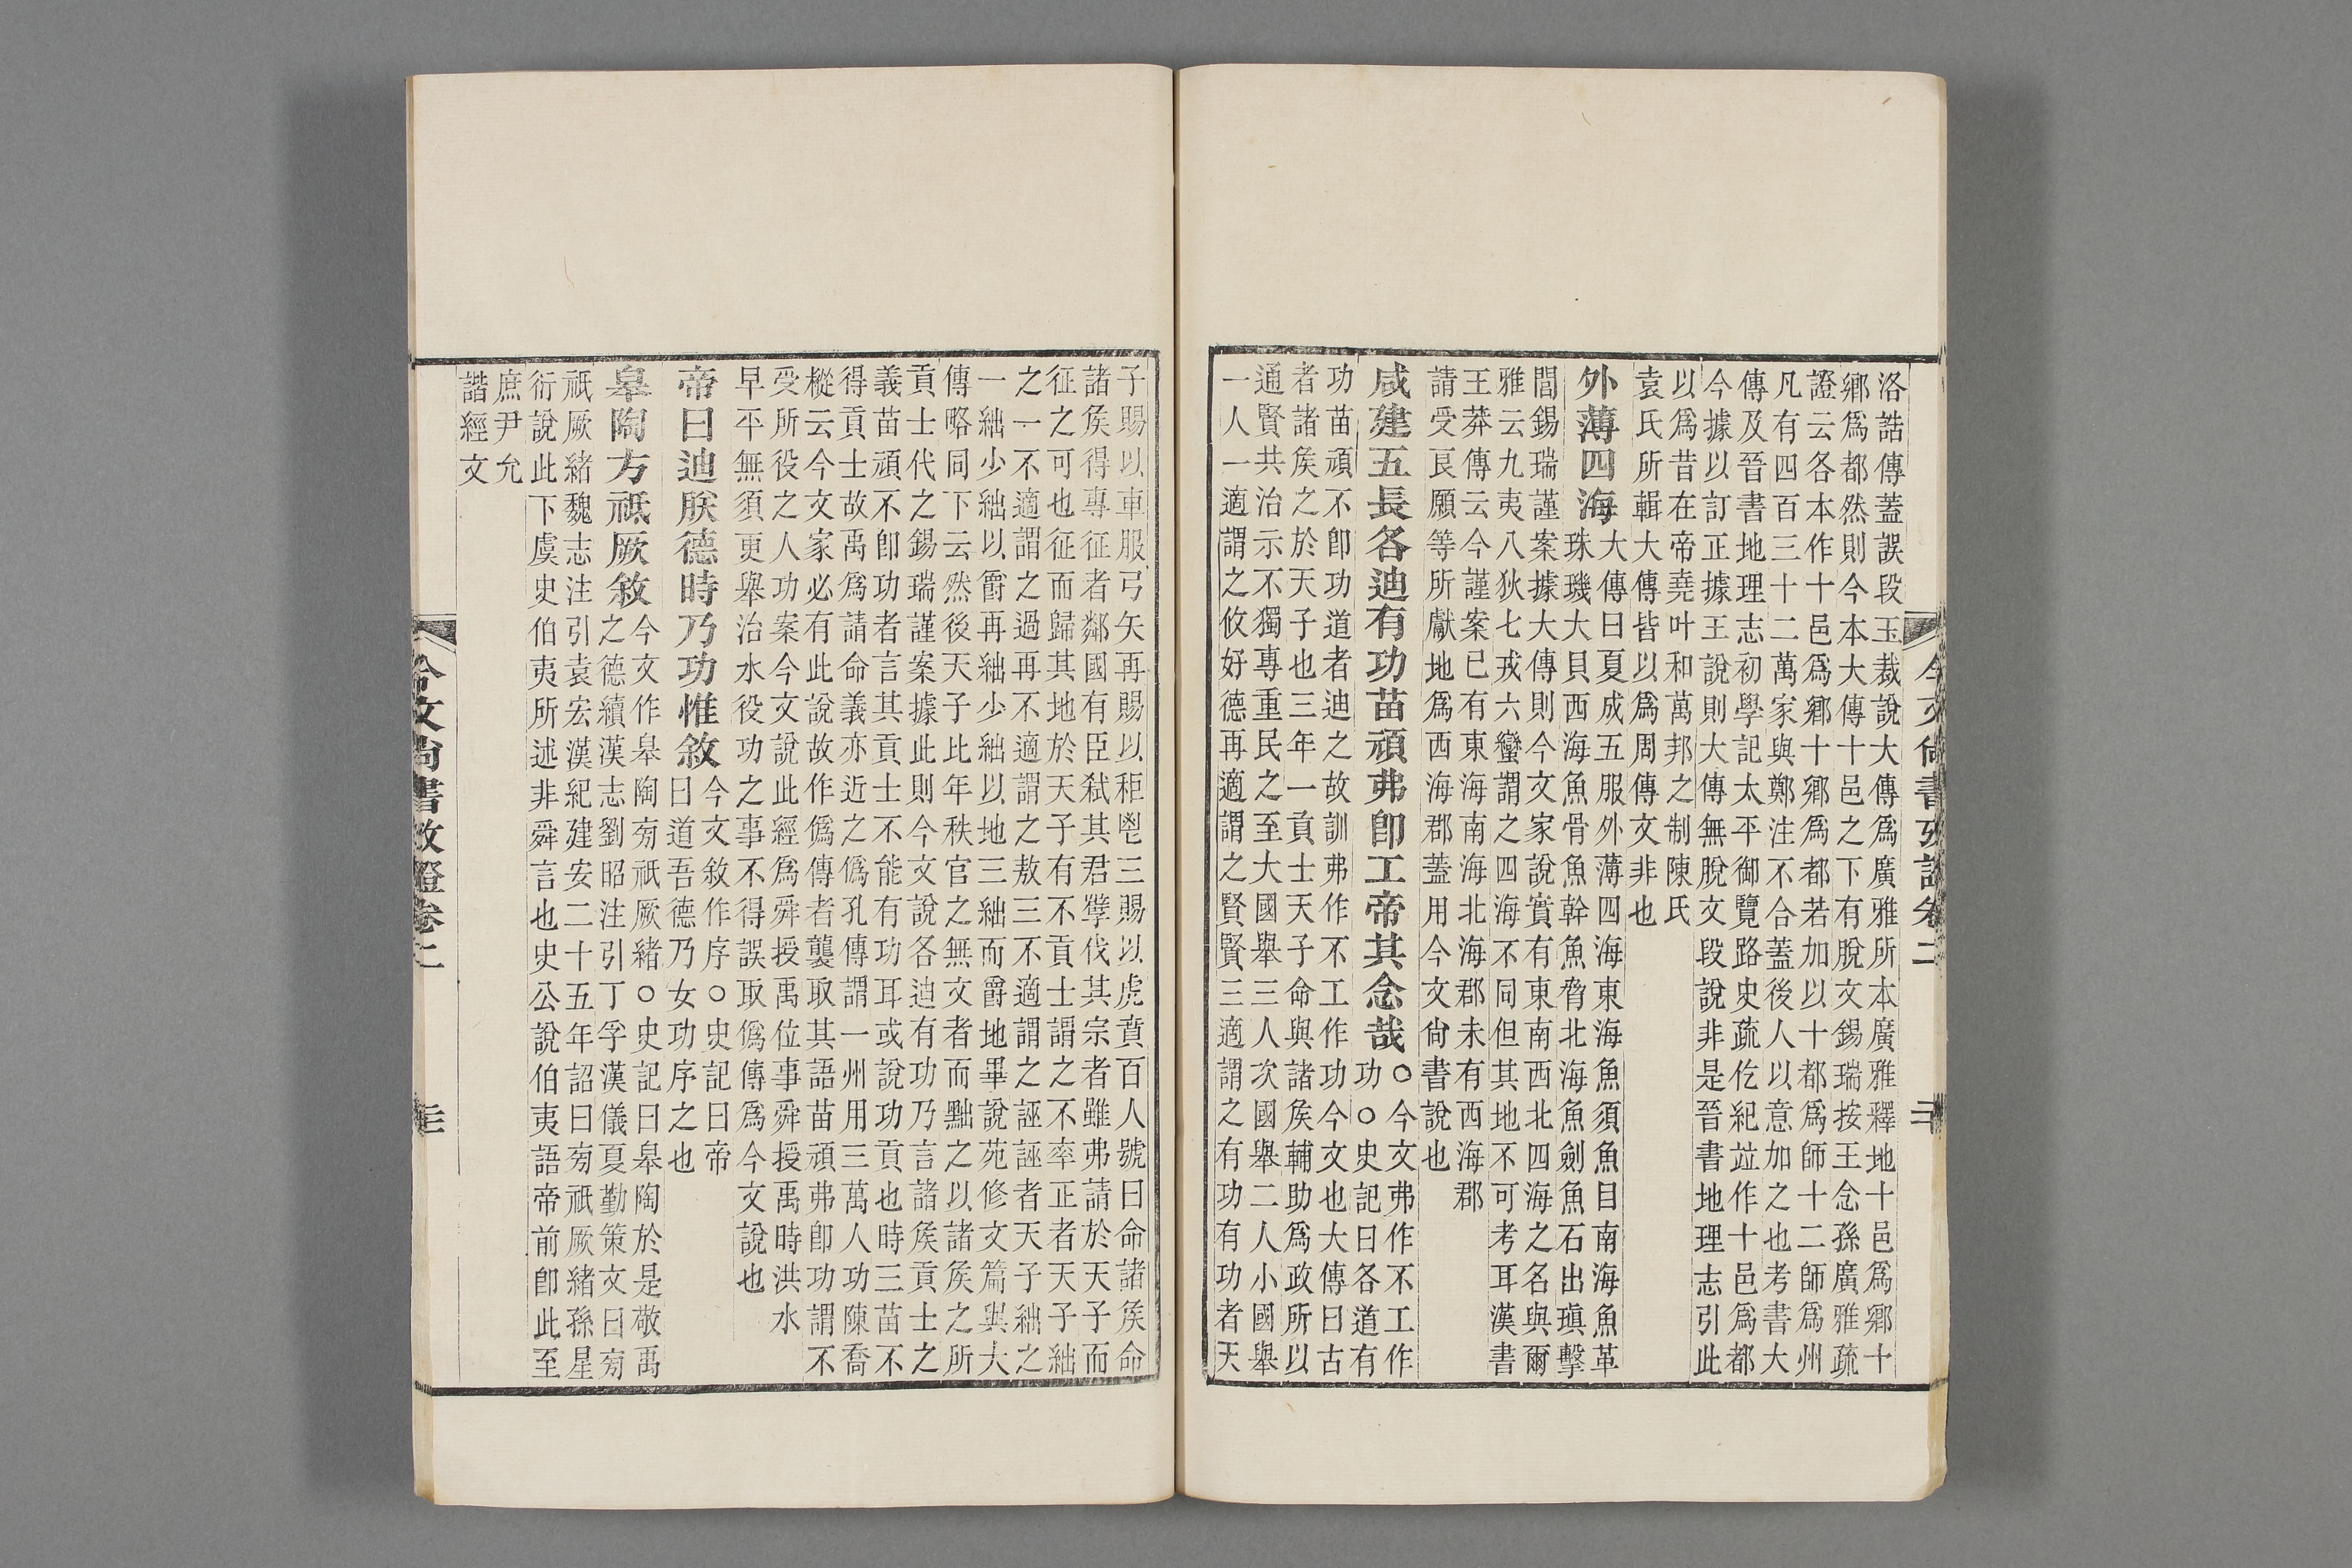 洛誥傳蓋誤段玉裁說大傳爲廣雅所本廣雅釋地十邑爲鄉十
鄉爲都然則今本大傳十邑之下有脫文錫瑞按王念孫廣雅疏
證云各本作十邑爲鄉十鄉爲都若加以十都爲師十二師爲州
凡有四百三十二萬家與鄭注不合蓋後人以意加之也考書大
傳及晉書地理志初學記太平御覽路史疏仡紀竝作十邑爲都
今據以訂正據王說則大傳無脫文段說非是晉書地理志引此
以爲昔在帝堯叶和萬邦之制陳氏
袁氏所輯大傳皆以爲周傳文非也
外薄四海
大傳曰夏成五服外薄四海東海魚須魚目南海魚革
珠璣大貝西海魚骨魚幹魚脅北海魚劍魚石出瑱擊
閭錫瑞謹案據大傳則今文家說實有東南西北四海之名與爾
雅云九夷八狄七戎六蠻謂之四海不同但其地不可考耳漢書
王莽傳云今謹案已有東海南海北海郡未有西海郡
請受良願等所獻地爲西海郡蓋用今文尙書說也
咸建五長各迪有功苗頑弗卽工帝其念哉
○今文弗作不工作
功○史記曰各道有
功苗頑不卽功道者迪之故訓弗作不工作功今文也大傳曰古
者諸矦之於天子也三年一貢士天子命與諸矦輔助爲政所以
通賢共治示不獨專重民之至大國舉三人次國舉二人小國舉
一人一適謂之攸好德再適謂之賢賢三適謂之有功有功者天
今文尙書攷證卷二
子賜以車服弓矢再賜以秬鬯三賜以虎賁百人號曰命諸矦命
諸矦得專征者鄰國有臣弒其君孽伐其宗者雖弗請於天子而
征之可也征而歸其地於天子有不貢士謂之不率正者天子絀
之一不適謂之過再不適謂之敖三不適謂之誣誣者天子絀之
一絀少絀以爵再絀少絀以地三絀而爵地畢說苑修文篇與大
傳略同下云然後天子比年秩官之無文者而黜之以諸矦之所
貢士代之錫瑞謹案據此則今文說各迪有功乃言諸矦貢士之
義苗頑不卽功者言其貢士不能有功耳或說功貢也時三苗不
得貢士故禹爲請命義亦近之僞孔傳謂一州用三萬人功陳喬
樅云今文家必有此說故作僞傳者襲取其語苗頑弗卽功謂不
受所役之人功案今文說此經爲舜授禹位事舜授禹時洪水
早平無須更舉治水役功之事不得誤取僞傳爲今文說也
帝曰迪朕德時乃功惟敘
今文敘作序○史記曰帝
曰道吾德乃女功序之也
皋陶方祗厥敘
今文作皋陶旁祇厥緒○史記曰皋陶於是敬禹
之德續漢志劉昭注引丁孚漢儀夏勤策文曰旁
祇厥緒魏志注引袁宏漢紀建安二十五年詔曰旁祇厥緒孫星
衍說此下虞史伯夷所述非舜言也史公說伯夷語帝前卽此至
庶尹允
諧經文
今文尙書攷證卷二